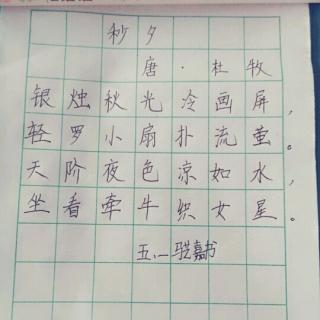 秒夕
唐·杜牧
银烛秋光冷画屏，
轻罗小扇扑流萤。
天阶夜色凉如水，
坐看牵牛织女星。
五.一 嘉书